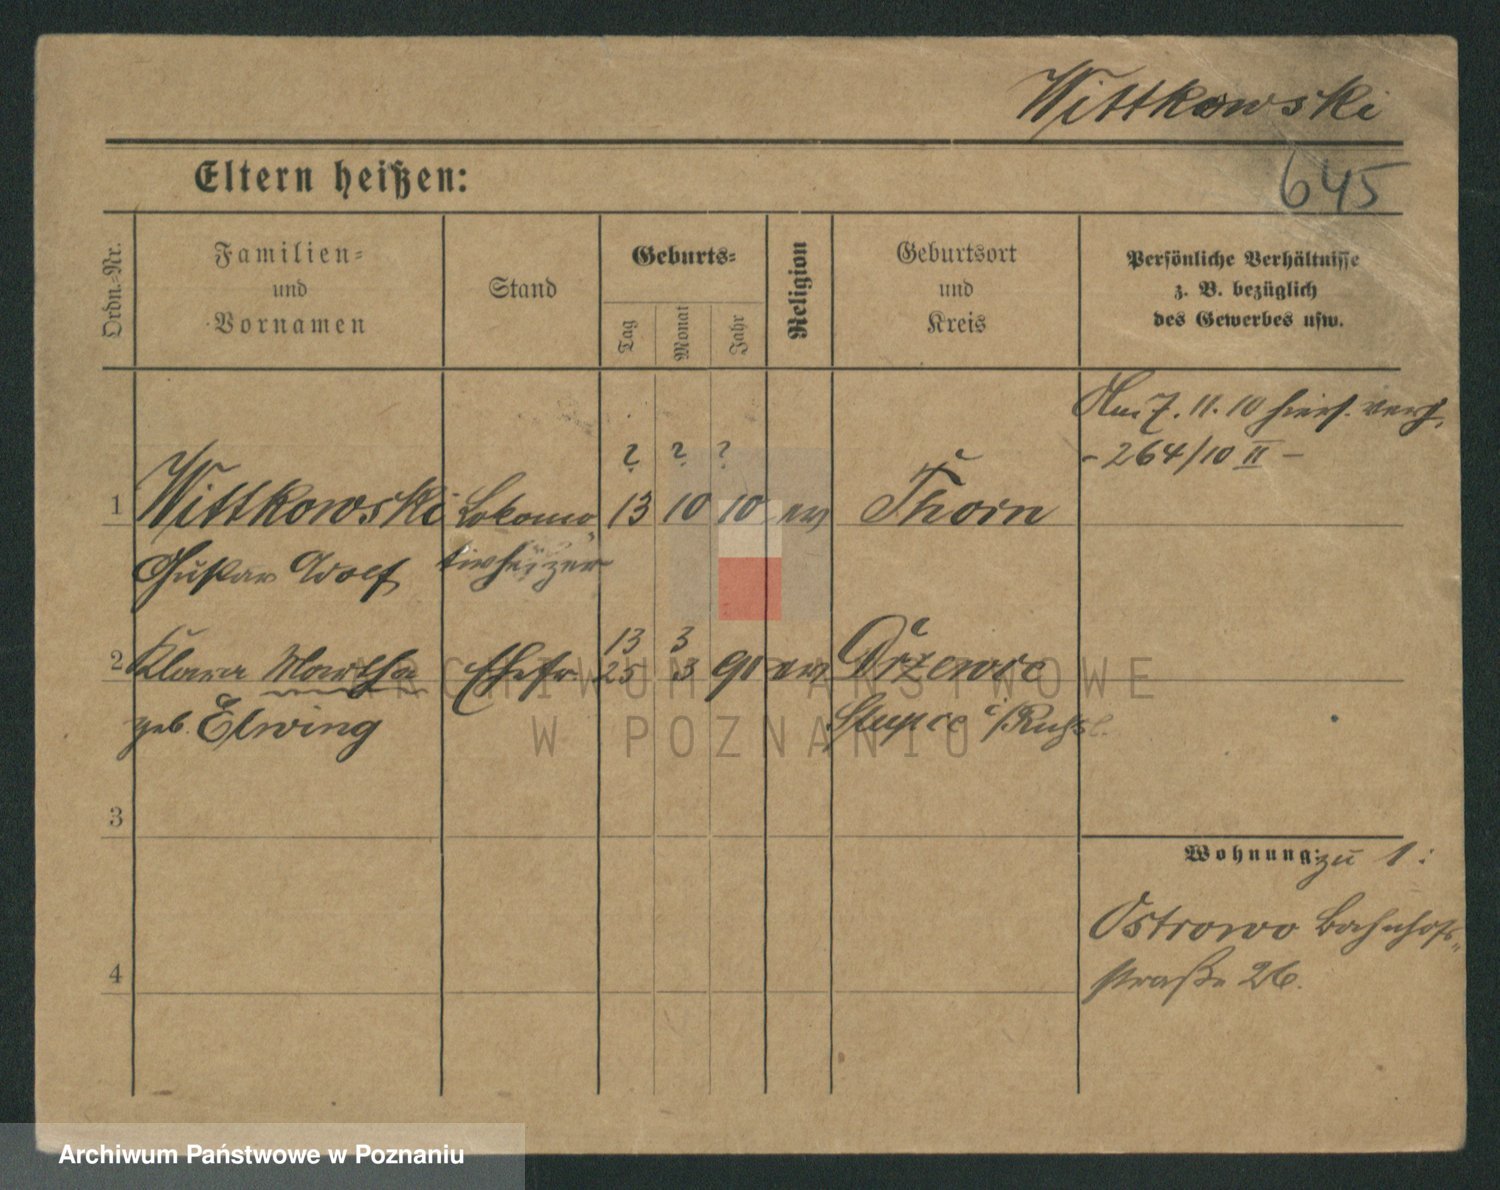 Wittkowski
645
Eltern heißen:
Ordn.-Nr.
Familien-
und
Vornamen
Stand
Geburts-
Tag
Monat
Jahr
Religion
Geburtsort
und
Kreis
Persönliche Verhältnisse
z. B. bezüglich
des Gewerbes usw.
Am 7. 11. 10 hiers. verh.
- 264/10 II -
? ? ?
1 Wittkowski Lokomo- 13 10 10 ev Thorn
Gustav Adolf tivheizer
13 3
2 Klara Martha Ehefr. 25 3 91 ev Drzewce
geb. Elwing Slupce i/Russl.
3
Wohnung: zu 1:
Ostrowo Bahnhofs-
straße 26.
4
ARCHIWUM PAŃSTWOWE
W POZNANIU
Archiwum Państwowe w Poznaniu